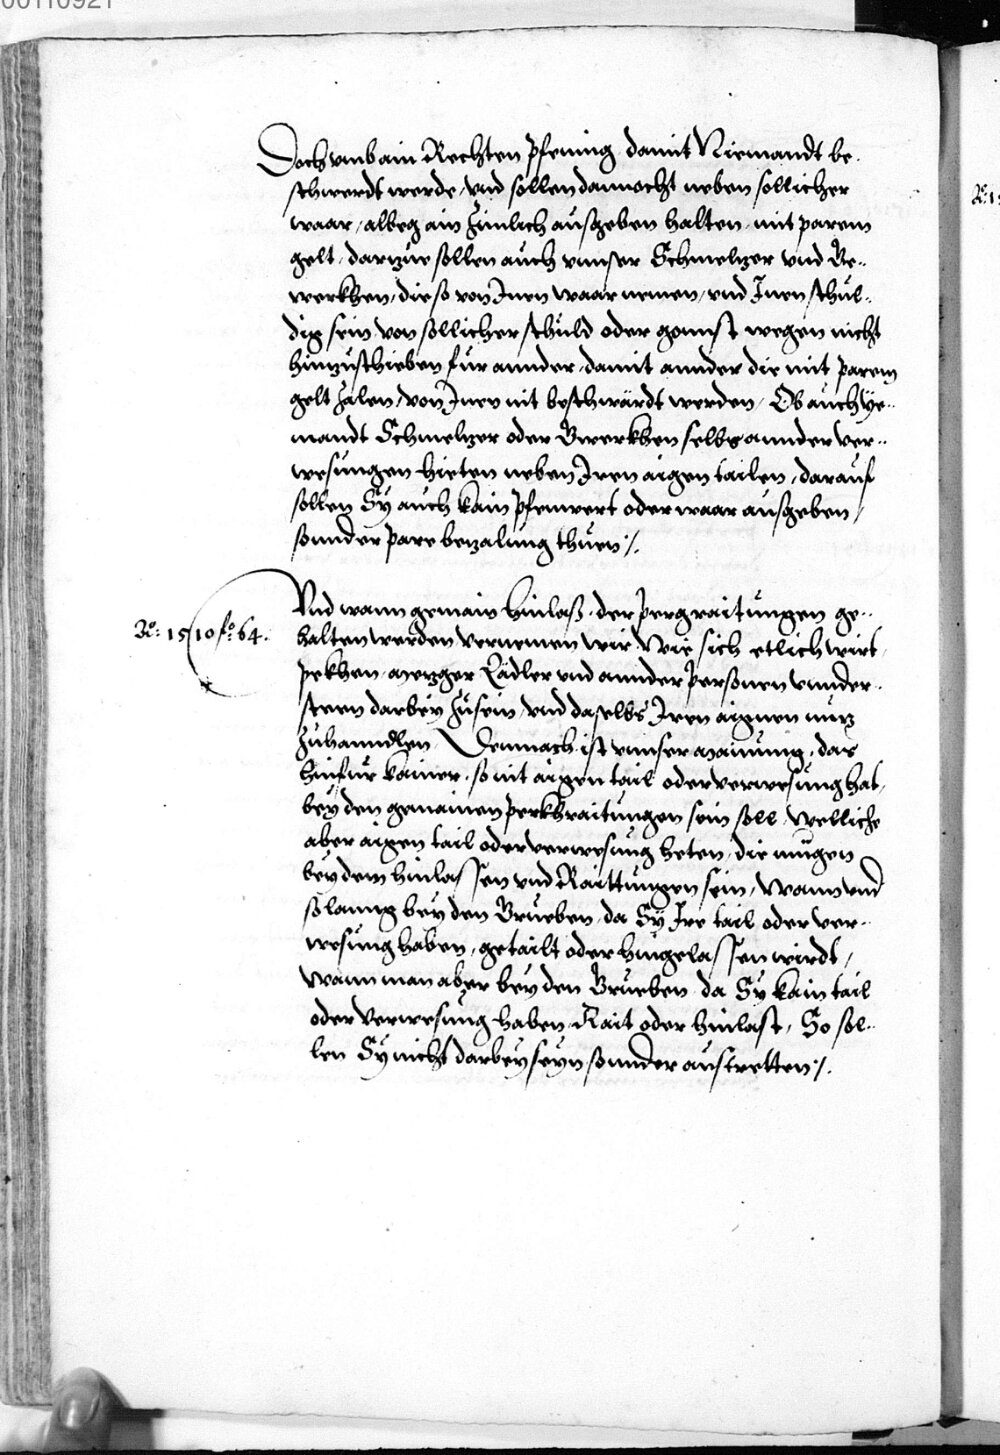 00110921
Doch umb ain Rechten pfening damit Niemandt be¬
schwerdt werde, und sollen dannocht neben sollicher
waar, albeg ain zimlich ausgeben halten, mit parem
gelt, darzue sollen auch unnser Schmelzer und Ge¬
werkhen, die so von Inen waar nemen, und Inen schul¬
dig sein von sollicher schuld oder gonnst wegen nicht
hinzuschieben für annder, damit annder die mit parem
gelt zalen, von Inen nit beschwärdt werden, Ob auch ye¬
mandt Schmelzer oder Gwerkhen selbs annder ver¬
wesungen hieten neben Iren aigen tailen, darauf
sollen Sy auch kain pfenwert oder waar ausgeben,
sonnder pare bezalung thuen /.
Und wann gemain hinlaß, der pergraitungen ge¬
Ao: 1510 fo: 64.
halten werden vernemen wir Wie sich etlich wirt,
pekhen, mezger Lädler und annder personen unnder¬
steen darbey zusein, und daselbs Iren aignen nuz
zuhanndlen, Demnach ist unnser mainung, das
hinfür kainer, so nit aigen tail oder verwesung hat,
bey den gemainen perkhraitungen sein soll, Welliche
aber aigen tail oder verwesung heten, die mugen
bey dem hinlassen und Raittungen sein, Wann und
solanng bey den Grueben, da Sy Ire tail oder ver¬
wesung haben, getailt oder hingelassen wirdt,
Wann man aber bey den Grueben da Sy kain tail
oder verwesung haben, Rait oder hinlast, So sol¬
len Sy nicht darbey seyn sonnder austretten /.